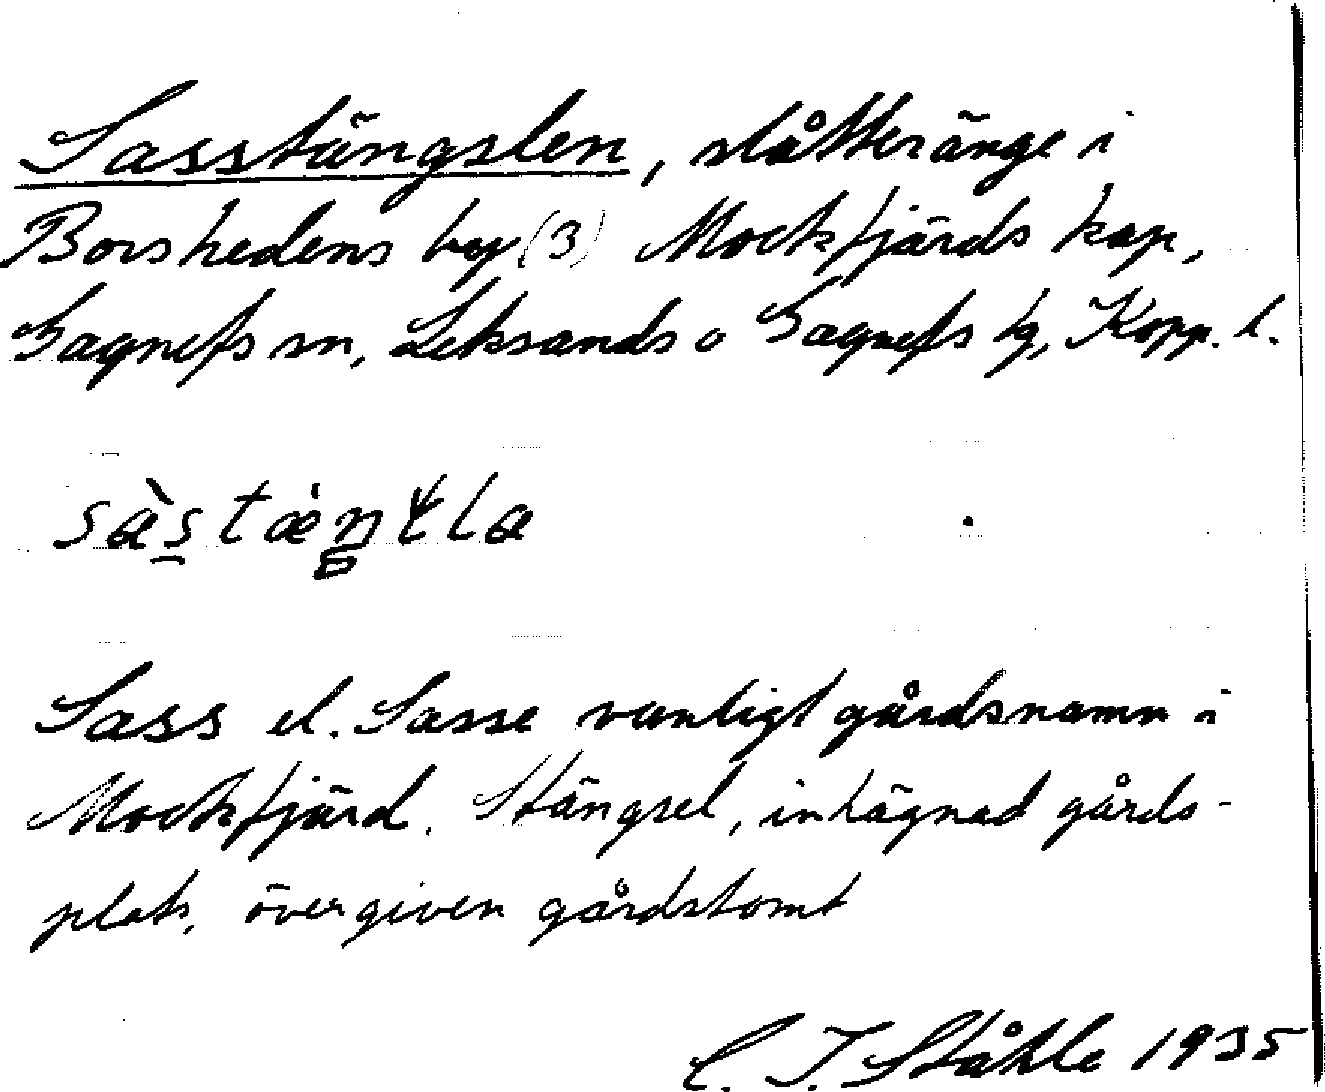 Sasstängslen, slåtteränge i
Borshedens by (3) Mockfjärds kap,
Gagnefs sn, Leksands o Gagnefs tg, Kopp. l.
Sass el. Sasse vanligt gårdsnamn i
Mockfjärd. Stängsel, inhägnad gårds-
plats, övergiven gårdstomt
C. I. Ståhle 1935